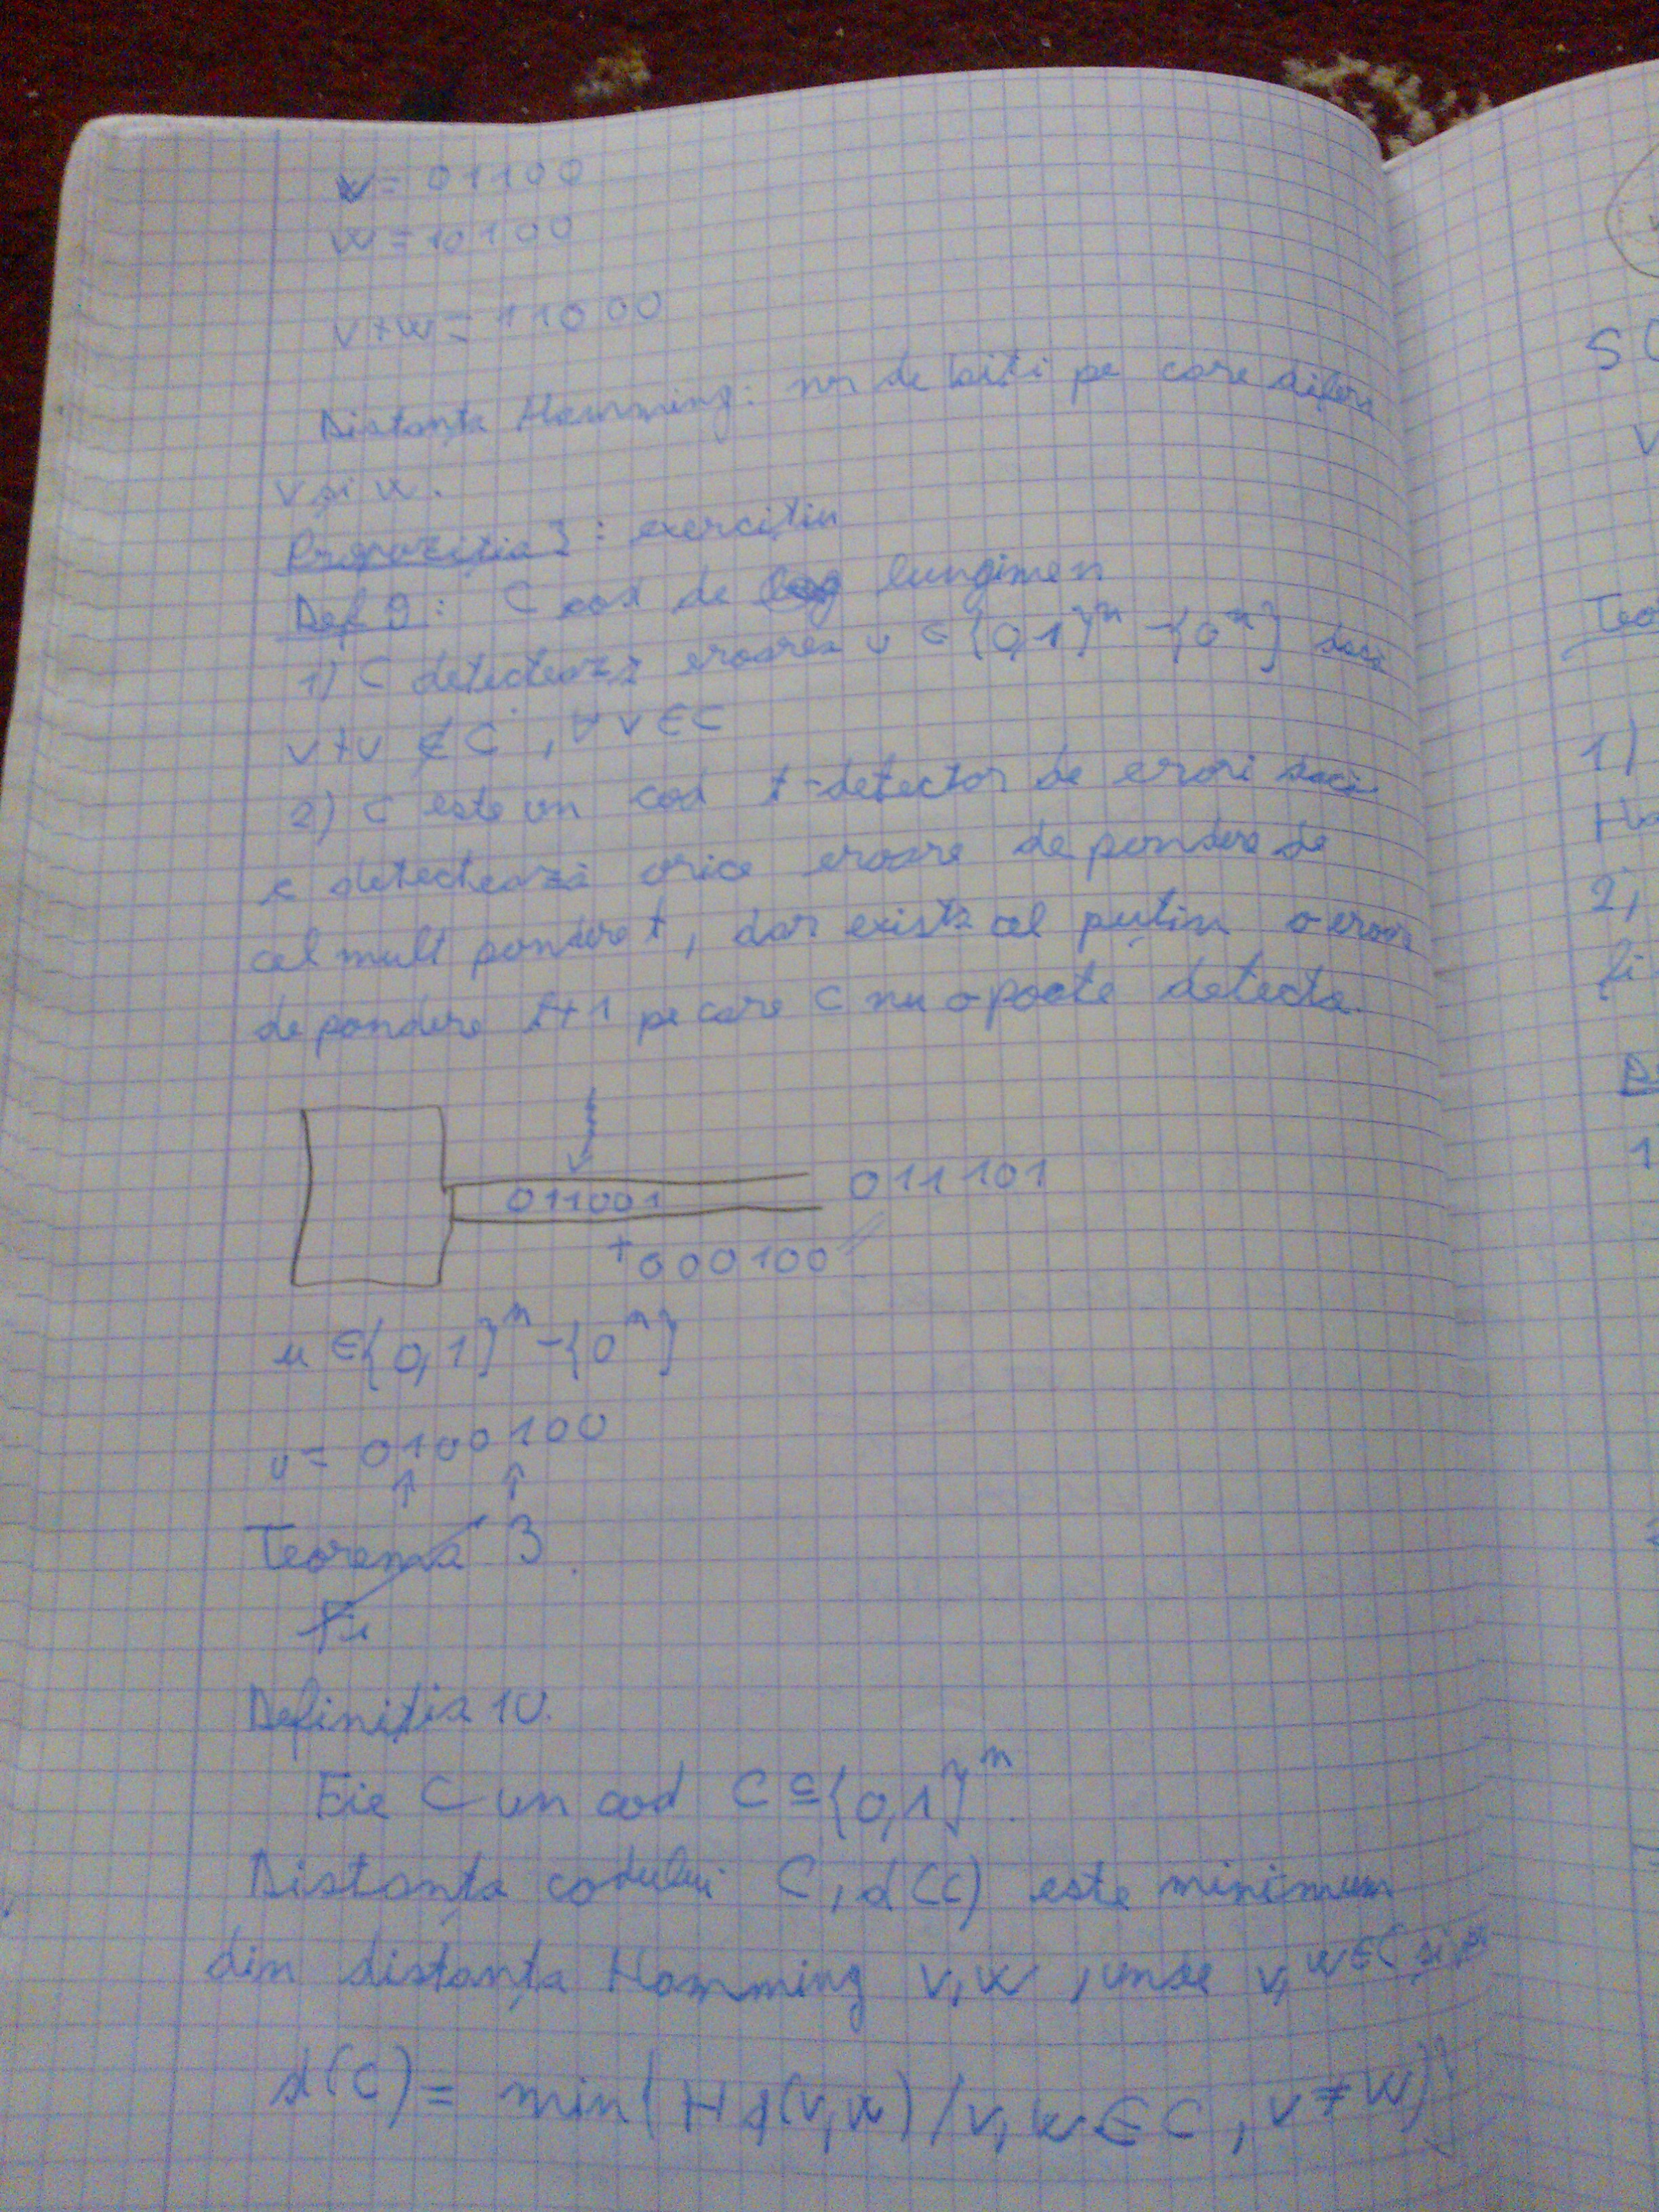 v = 01100
w = 10100
v+w = 11000
Distanța Hamming: nr de biti pe care difera
v și w.
Propozitia 3: exercițiu
Def 9: C cod de lungime n
1) C detectează eroarea u ∈ {0,1}^n - {0^n} daca
v+u ∉ C, ∀ v ∈ C
2) C este un cod t-detector de erori dacă
c detectează orice eroare de pondere de
cel mult pondere t, dar există cel puțin o eroare
de pondere t+1 pe care C nu o poate detecta.
011001 011101
+000100
u ∈ {0,1}^n - {0^n}
u = 0100100
↑ ↑
Teorema 3
Fie
Definiția 10.
Fie C un cod C ⊆ {0,1}^n.
Distanța codului C, d(C) este minimum
din distanța Hamming v,w, unde v,w ∈ C și
d(C) = min{Hd(v,w) / v,w ∈ C, v ≠ w}
S(
v
Teo
1)
Ha
2)
fi
1